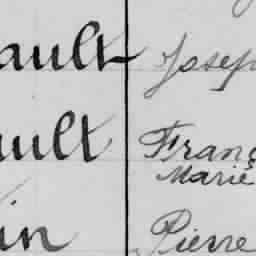 ault Josep
ault Franç
Marie
in Pierre